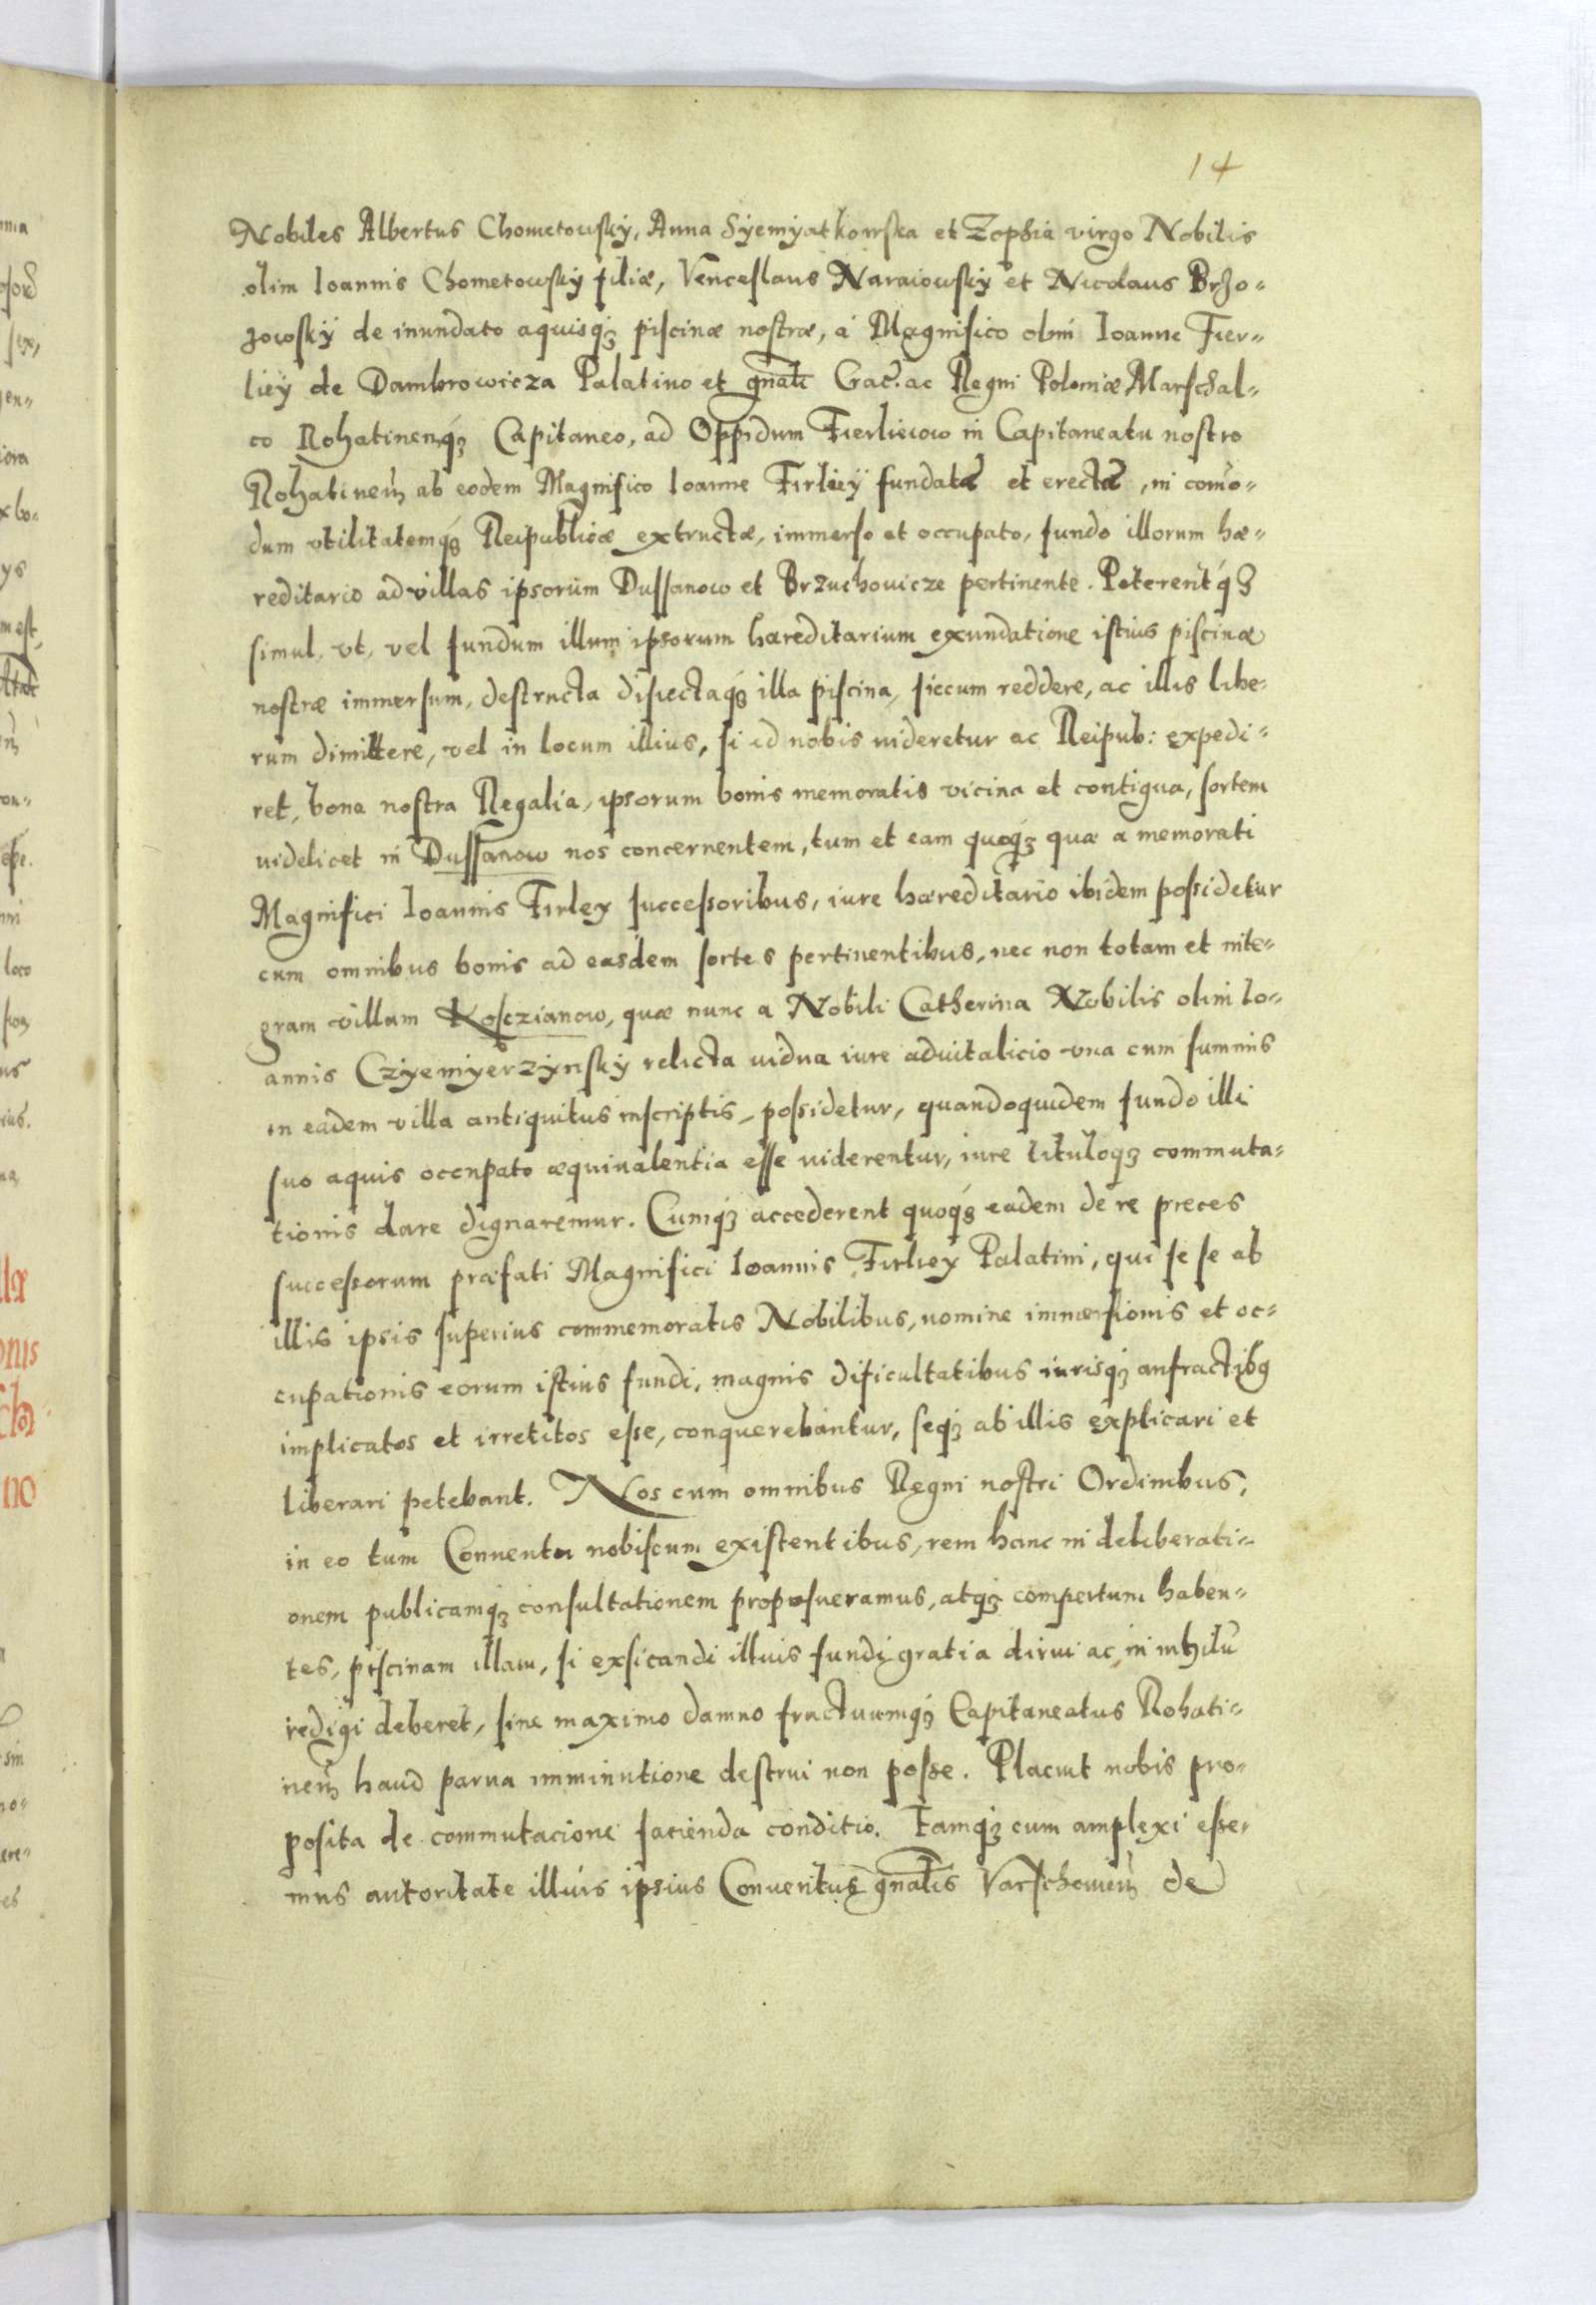 14
Nobiles Albertus Chometowskÿ, Anna Sÿemÿatkowska et Zophia virgo Nobilis
olim Ioannis Chometowskÿ filiæ, Venceslaus Naraiowskÿ et Nicolaus Brzo-
zowskÿ de inundato aquisqꝫ piscinæ nostræ, a Magnifico olim Ioanne Fier-
lieÿ de Dambrowicza Palatino et gnali Crac. ac Regni Poloniæ Marschal-
co Rohatinenqꝫ Capitaneo, ad Oppidum Fierlieiow in Capitaneatu nostro
Rohatinen̄ ab eodem Magnifico Ioanne Firlieÿ fundatæ et erectæ, in com̄o-
dum vtilitatemqꝫ Reipublicæ extructæ, immerso et occupato, fundo illorum hæ-
reditario ad villas ipsorum Dussanow et Brzuchouicze pertinente. Peterentqꝫ
simul, vt, vel fundum illum ipsorum hæreditarium exundatione istius piscinæ
nostræ immersum, destructa disiectaqꝫ illa piscina, siccum reddere, ac illis libe-
rum dimittere, vel in locum illius, si id nobis uideretur ac Reipub: expedi-
ret, bona nostra Regalia, ipsorum bonis memoratis vicina et contigua, sortem
uidelicet in Dussanow nos concernentem, tum et eam quoqꝫ quæ a memorati
Magnifici Ioannis Firley successoribus, iure hæreditario ibidem possidetur
cum omnibus bonis ad easdem sortes pertinentibus, nec non totam et inte-
gram villam Kosczianow, quæ nunc a Nobili Catherina Nobilis olim Io-
annis Czÿemÿerzÿnskÿ relicta uidua iure aduitalicio vna cum summis
in eadem villa antiquitus inscriptis, possidetur, quandoquidem fundo illi
suo aquis occupato æquiualentia esse uiderentur, iure tituloqꝫ commuta-
tionis dare dignaremur. Cumqꝫ accederent quoqꝫ eadem de re preces
successorum præfati Magnifici Ioannis Firliey Palatini, qui se se ab
illis ipsis superius commemoratis Nobilibus, nomine immersionis et oc-
cupationis eorum istius fundi, magnis dificultatibus iurisqꝫ anfractibꝯ
implicatos et irretitos esse, conquerebantur, seqꝫ ab illis explicari et
liberari petebant. Nos cum omnibus Regni nostri Ordinibus,
in eo tum Conuentu nobiscum existentibus, rem hanc in deliberati-
onem publicamqꝫ consultationem proposueramus, atqꝫ compertum haben-
tes, piscinam illam, si exsicandi illius fundi gratia dirui ac in nihilū
redigi deberet, sine maximo damno fructuumqꝫ Capitaneatus Rohati-
nen̄ haud parua imminutione destrui non posse. Placuit nobis pro-
posita de commutacione facienda conditio. Eamqꝫ cum amplexi esse-
mus autoritate illius ipsius Conuentus gnalis Varschouien̄ de